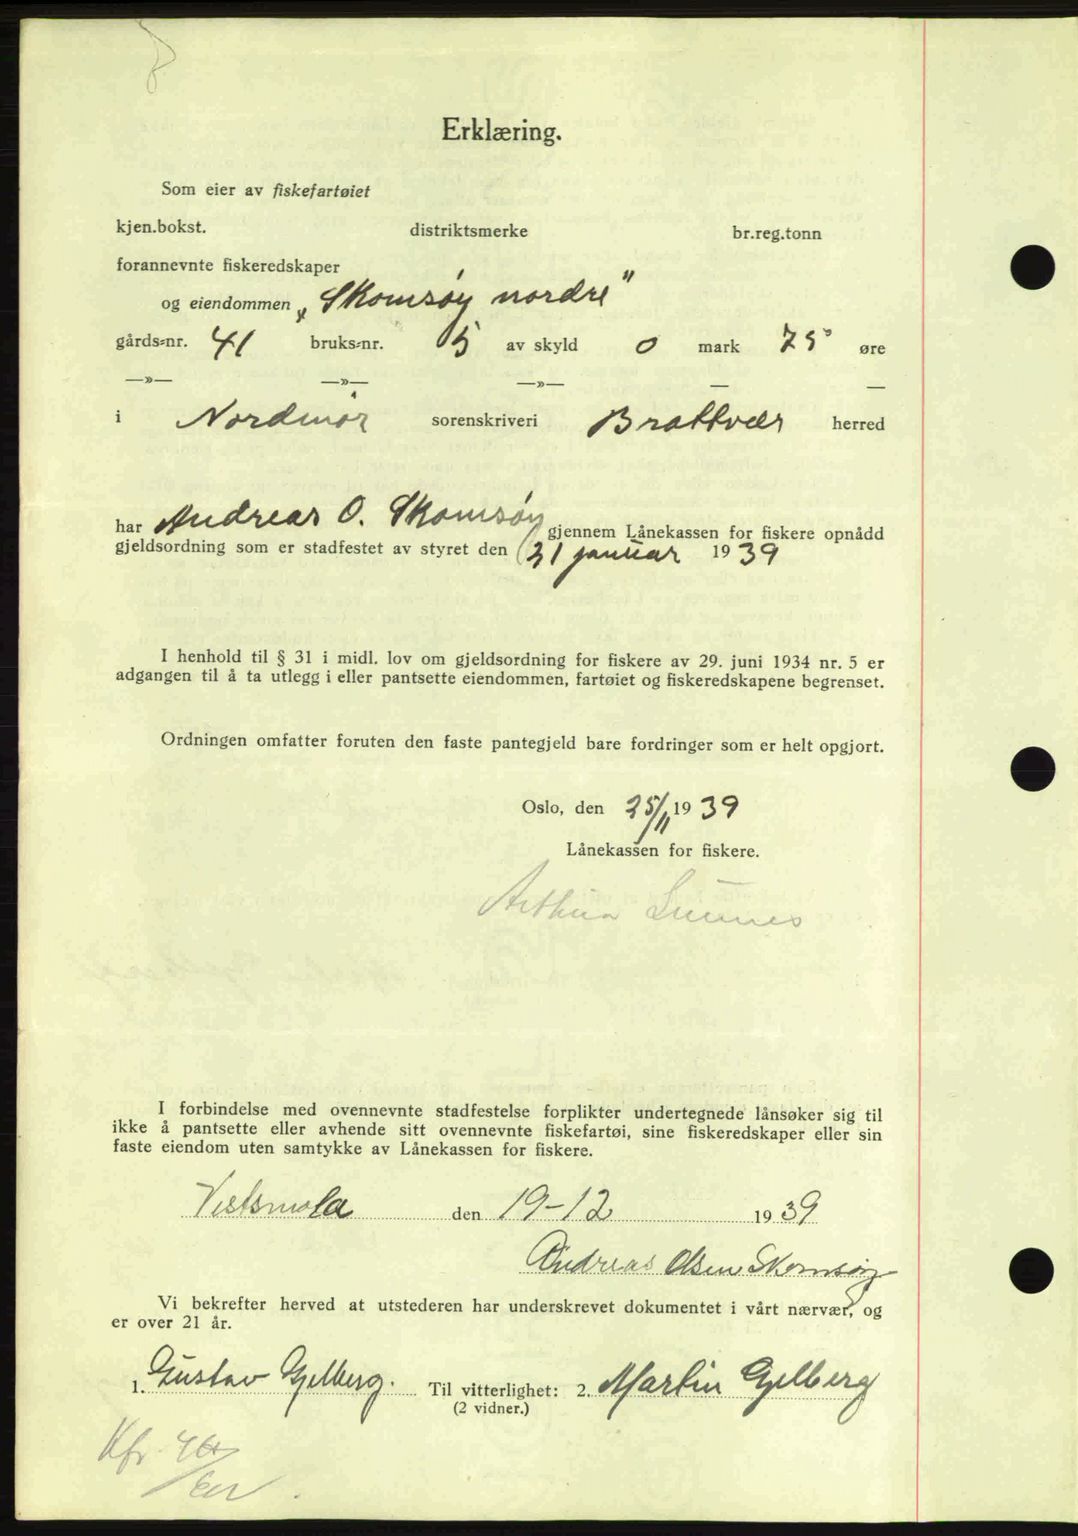 Erklæring.
Som eier av fiskefartøiet
kjen.bokst. distriktsmerke br.reg.tonn
forannevnte fiskeredskaper
og eiendommen „Skomsøy nordre"
gårds-nr. 41 bruks-nr. 5 av skyld 0 mark 75 øre
—»— —»— —»— — —
i Nordmør sorenskriveri Brattvær herred
har Andreas O. Skomsøy gjennem Lånekassen for fiskere opnådd
gjeldsordning som er stadfestet av styret den 21 januar 1939
I henhold til § 31 i midl. lov om gjeldsordning for fiskere av 29. juni 1934 nr. 5 er
adgangen til å ta utlegg i eller pantsette eiendommen, fartøiet og fiskeredskapene begrenset.
Ordningen omfatter foruten den faste pantegjeld bare fordringer som er helt opgjort.
Oslo, den 25/11 1939
Lånekassen for fiskere.
Arthur Sunnes
I forbindelse med ovennevnte stadfestelse forplikter undertegnede lånsøker sig til
ikke å pantsette eller avhende sitt ovennevnte fiskefartøi, sine fiskeredskaper eller sin
faste eiendom uten samtykke av Lånekassen for fiskere.
Vestsmøla den 19-12 1939
Andreas Olsen Skomsøy
Vi bekrefter herved at utstederen har underskrevet dokumentet i vårt nærvær, og
er over 21 år.
1. Gustav Gjelberg. Til vitterlighet: 2. Martin Gjelberg
(2 vidner.)
Kfr.